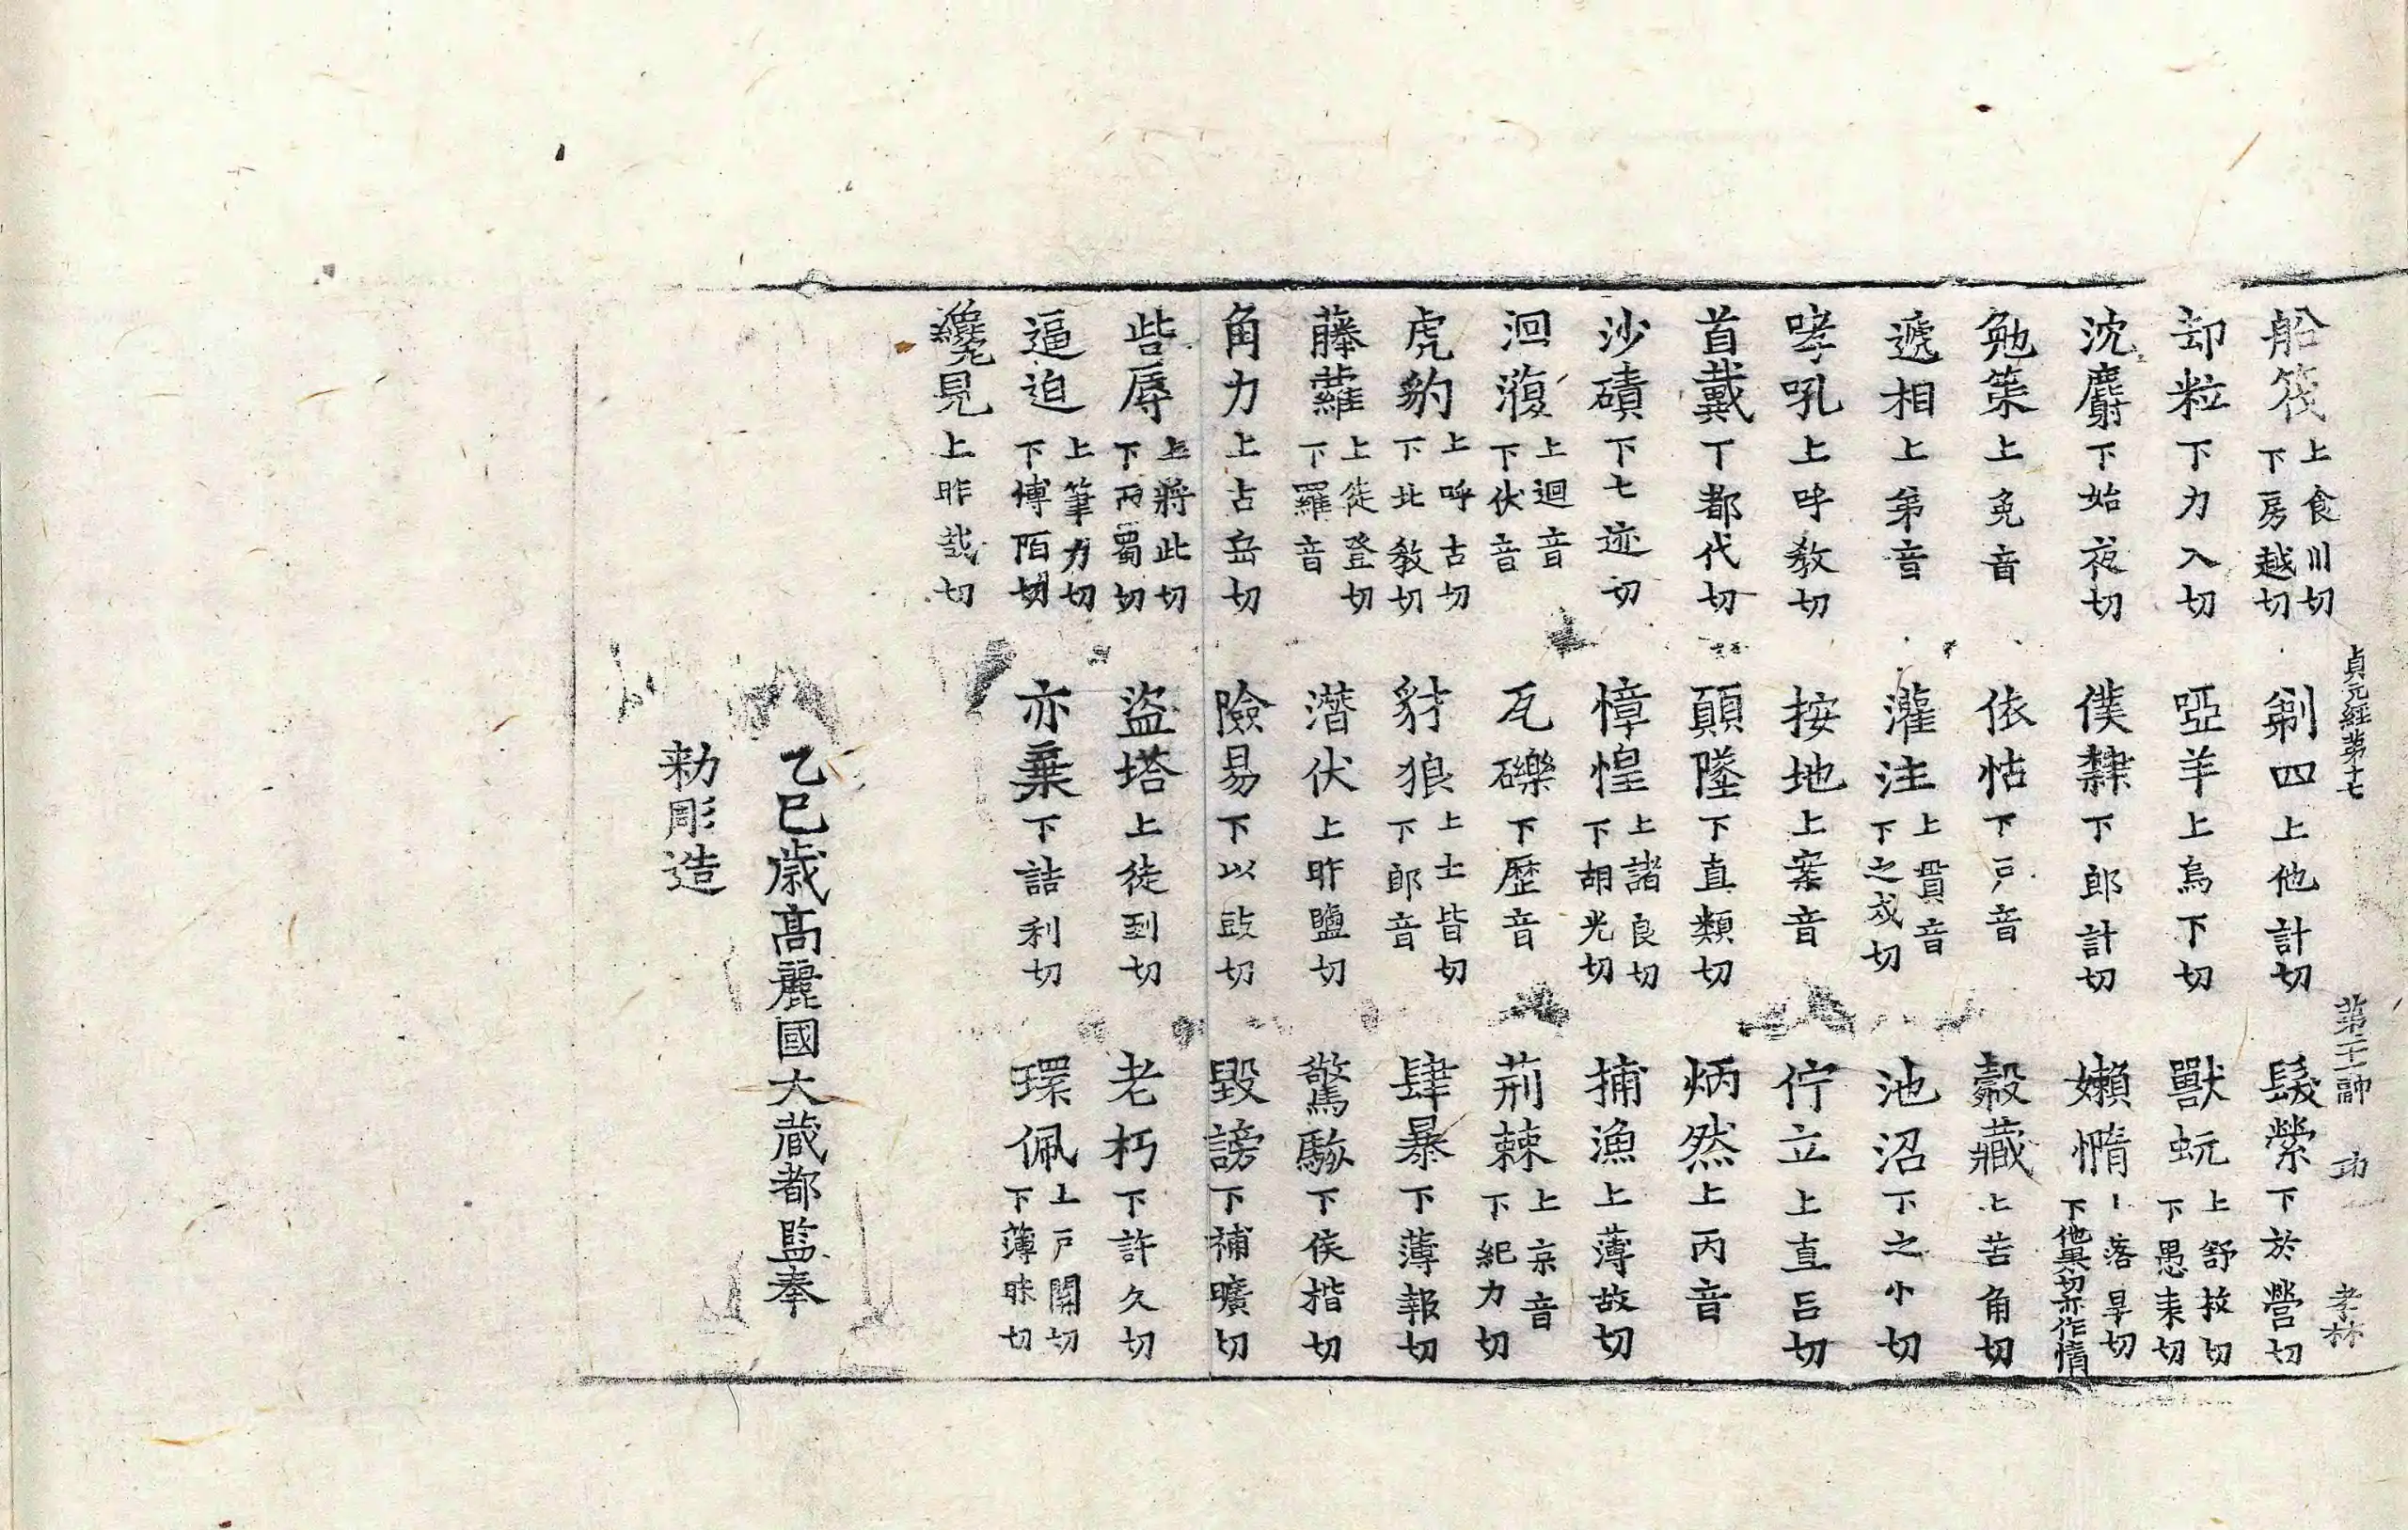 貞元經第十七 第二十二 㡧 功 孝林
船筏 上食川切下房越切 剃四 上他計切 髮縈 下於營切
却粒 下力入切 啞羊 上烏下切 獸蚖 上舒救切下愚袁切
沈麝 下始夜切 僕隸 下郎計切 嬾惰 上落旱切下他果切亦作惰
勉策 上免音 依怙 下戶音 㲉藏 上苦角切
遞相 上第音 灌注 上貫音下之戍切 池沼 下之小切
哮吼 上呼敎切 按地 上案音 佇立 上直呂切
首戴 丁都代切 顚墜 下直類切 炳然 上丙音
沙磧 下七迹切 慞惶 上諸良切下胡光切 捕漁 上薄故切
洄澓 上迴音下伏音 瓦礫 下歷音 荊棘 上京音下紀力切
虎豹 上呼古切下北敎切 豺狼 上士皆切下郎音 肆暴 下薄報切
藤蘿 上徒登切下羅音 潛伏 上昨鹽切 驚駭 下侯揩切
角力 上古岳切 險易 下以豉切 毀謗 下補曠切
呰辱 上將此切下而蜀切 盜塔 上徒到切 老朽 下許久切
逼迫 上筆力切下博陌切 亦棄 下詰利切 環佩 上戶關切下薄昧切
纔見 上昨哉切
乙巳歲高麗國大藏都監奉
勅彫造